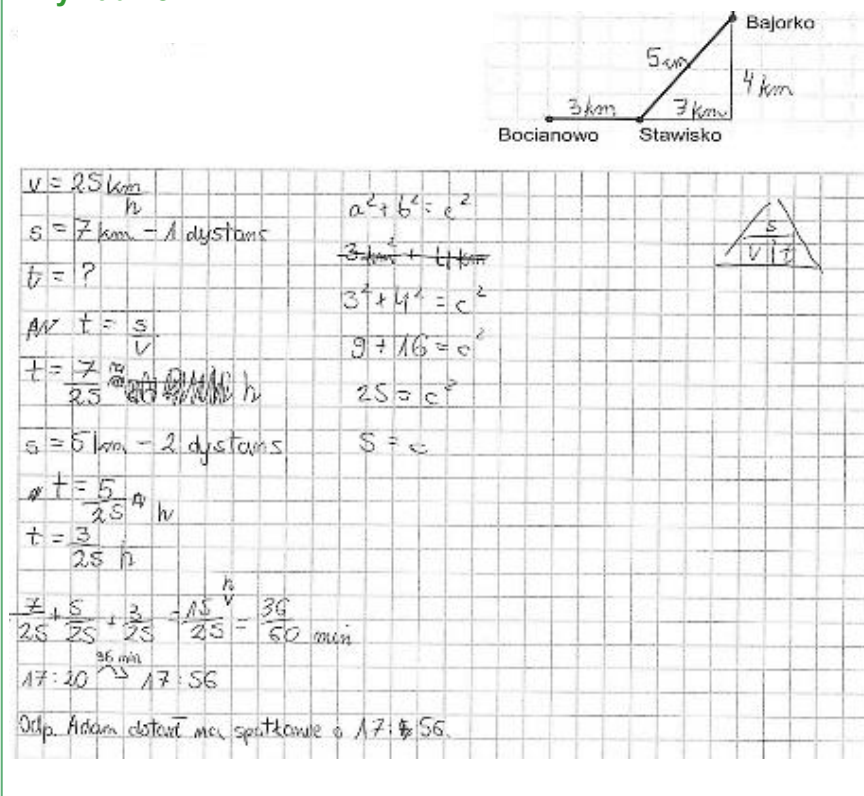 Bajorko
5 km
4 km
3 km
3 km
Bocianowo
Stawisko
v = 25 km/h
s = 7 km - 1 dystans
t = ?
t = s/v
t = 7/25 h
s = 5 km - 2 dystans
t = 5/25 h
t = 3/25 h
7/25 + 5/25 + 3/25 = 15/25 h = 36/60 min
36 min
17:20 17:56
Odp. Adam dotarł na spotkanie o 17:56.
a² + b² = c²
3 km² + 4 km
3² + 4² = c²
9 + 16 = c²
25 = c²
5 = c
s
v t